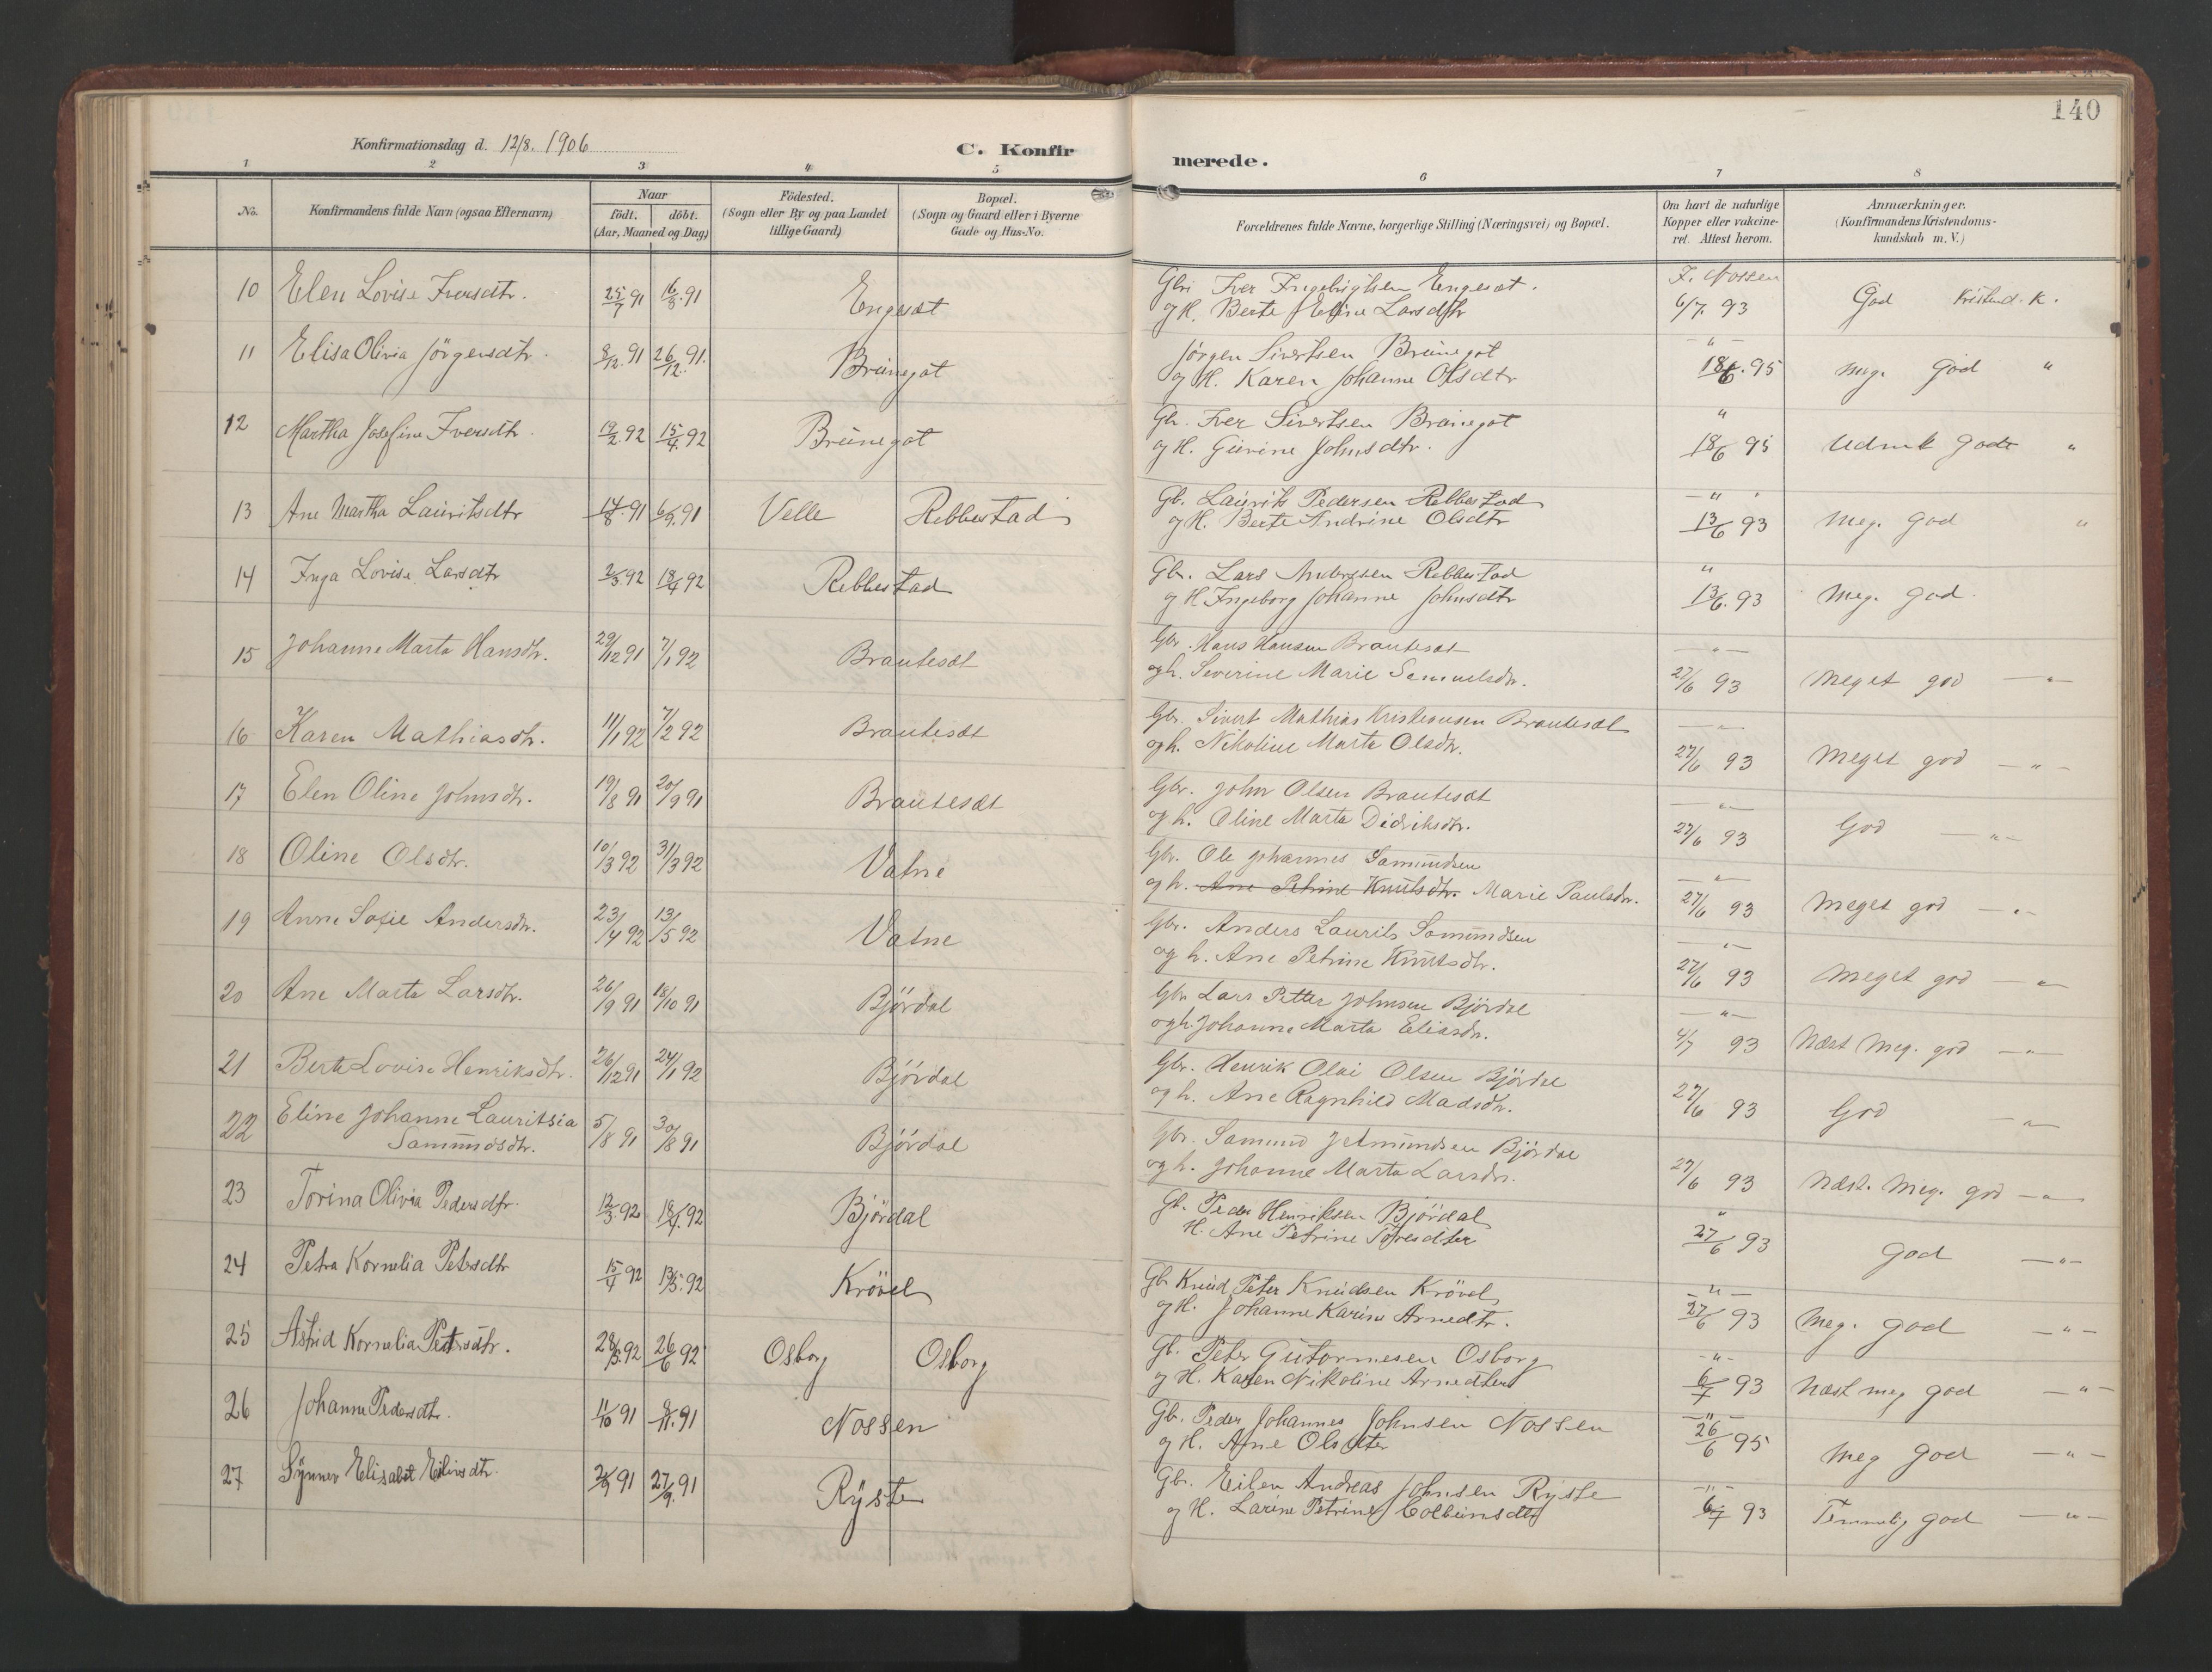 140
Konfirmationsdag d. 12/8. 1906
C. Konfirmerede.
1 2 3 4 5 6 7 8
No. Konfirmandens fulde Navn (ogsaa Efternavn) Naar födt. döbt. (Aar, Maaned og Dag) Födested. (Sogn eller By og paa Landet tillige Gaard) Bopæl. (Sogn og Gaard eller i Byerne Gade og Hus-No. Forældrenes fulde Navne, borgerlige Stilling (Næringsvei) og Bopæl. Om havt de naturlige Kopper eller vakcineret. Attest herom. Anmærkninger. (Konfirmandens Kristendomskundskab m. V.)
10 Elen Lovise Iversdtr. 25/7 91 16/8 91 Engesæt Gbr. Iver Ingebrigtsen Engesæt. F. Nossen
og H. Berte Eline Larsdtr 6/7. 93 God Kristend. K.
11 Elisa Olivia Jörgensdtr. 8/12. 91 26/12. 91. Brünegot Jörgen Sivertsen Brünegot - " -
og H. Karen Johanne Olsdtr 18/6. 95 meg. god "
12 Martha Josefine Iversdtr. 19/2. 92 15/4. 92 Brünegot Gbr. Iver Sivertsen Brünegot "
og H. Gürine Johnsdtr. 18/6 95 Udmk godt "
13 Ane Martha Lauritsdtr 17/8. 91 6/9. 91 Velle Rebbestad Gb. Laurits Pedersen Rebbestad - " -
og H. Berte Andrine Olsdtr 13/6 93 Meg. god "
14 Inga Lovise Larsdtr 2/3. 92 18/4 92 Rebbestad Gbr. Lars Andersen Rebbestad "
og H Ingeborg Johanne Johnsdtr 13/6. 93 Meg. god.
15 Johanne Marta Hansdtr. 29/12 91 7/1 92 Brautesæt Gbr. Hans Hansen Brautesæt — " —
og h. Severine Marie Samuelsdtr. 27/6 93 Meget god — " —
16 Karen Mathiasdtr. 11/1 92 7/2 92 Brautesæt Gbr. Sivert Mathias Kristensen Brautesæt — " —
og h. Nikoline Marta Olsdtr. 27/6 93 Meget god — " —
17 Elen Oline Johnsdtr. 19/8 91 20/9 91 Brautesæt Gbr. John Olsen Brautesæt — " —
og h. Oline Marta Didriksdtr. 27/6 93 God — " —
18 Oline Olsdtr. 10/3 92 31/3 92 Vatne Gbr. Ole Johannes Samundsen — " —
og h. Ane Petrine Knutsdtr. Marie Paulsdtr. 27/6 93 Meget god — " —
19 Anne Sofie Andersdtr. 23/4 92 13/5 92 Vatne Gbr. Anders Laurits Samundsen — " —
og h. Ane Petrine Knutsdtr. 27/6 93 Meget god — " —
20 Ane Marta Larsdtr. 26/9 91 18/10 91 Björdal Gbr Lars Petter Johnsen Björdal — " —
og h. Johanne Marta Eliasdtr. 4/7 93 Næst Meg. god — " —
21 Berte Lovise Henriksdtr. 26/12 91 24/1 92 Björdal Gbr. Henrik Olai Olsen Björdal
og h. Ane Ragnhild Madsdtr. 27/6 93 God — " —
22 Eline Johanne Lauritsia 5/8 91 30/8 91 Björdal Gbr. Samund Björdal
Samundsdtr. og h. Johanne Marta Larsdtr. 27/6 93 Næst. Meg. god — " —
23 Torina Olivia Pedersdtr. 12/3. 92 18/4. 92 Björdal Gb. Peder Henriksen Björdal "
H. Ane Petrine Toresdtter 27/6 93 God — " —
24 Petra Kornelia Petersdtr 15/4 92 13/5. 92 Krövel Gbr Knüd Peter Knüdsen Krövel - " -
og H. Johanne Karine Arnedtr. 27/6 93 Meg. god — " —
25 Astrid Kornelia Petersdtr. 28/5. 92 26/6 92 Osborg Osborg Gb. Peter Gütormesen Osborg - " -
og H. Karen Nikoline Arnedtter 6/7 93 Næst meg god — " —
26 Johanne Pedersdtr. 11/10 91 8/11. 91 Nossen Gbr. Peder Johannes Johnsen Nossen - " -
og H. Ane Olsdtter 26/6 95 Meg god — " —
27 Synnev Elisabet Eilivsdtr. 2/9 91 27/9. 91 Ryste Gbr. Eilev Andreas Johnsen Ryste - " -
og H. Larine Petrine Colbeinsdtr 6/7 93 Temmelig god — " —